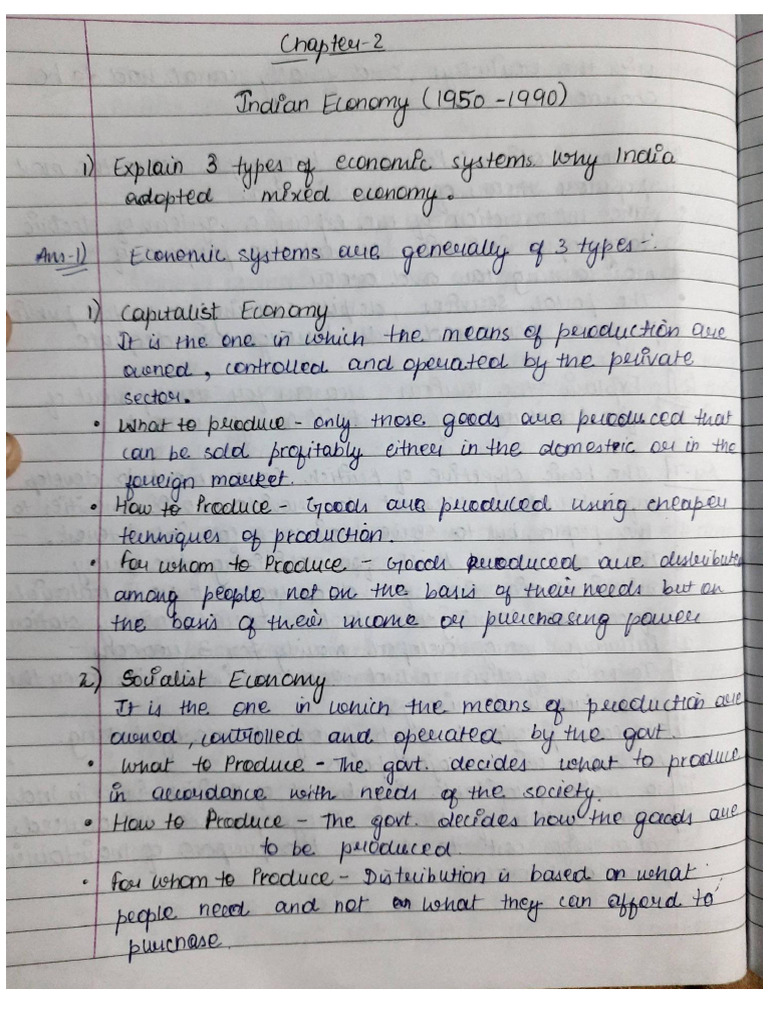 Chapter-2
Indian Economy (1950-1990)
1) Explain 3 types of economic systems. Why India
adopted mixed economy.
Ans-1) Economic systems are generally of 3 types-:
1) Capitalist Economy
It is the one in which the means of production are
owned, controlled and operated by the private
sector.
• What to produce - only those goods are produced that
can be sold profitably either in the domestic or in the
foreign market.
• How to Produce - Goods are produced using cheaper
techniques of production.
• For whom to Produce - Goods produced are distributed
among people not on the basis of their needs but on
the basis of their income or purchasing power
2) Socialist Economy
It is the one in which the means of production are
owned, controlled and operated by the govt.
• What to Produce - The govt. decides what to produce
in accordance with needs of the society.
• How to Produce - The govt. decides how the goods are
to be produced.
• For whom to Produce - Distribution is based on what
people need and not on what they can afford to
purchase.